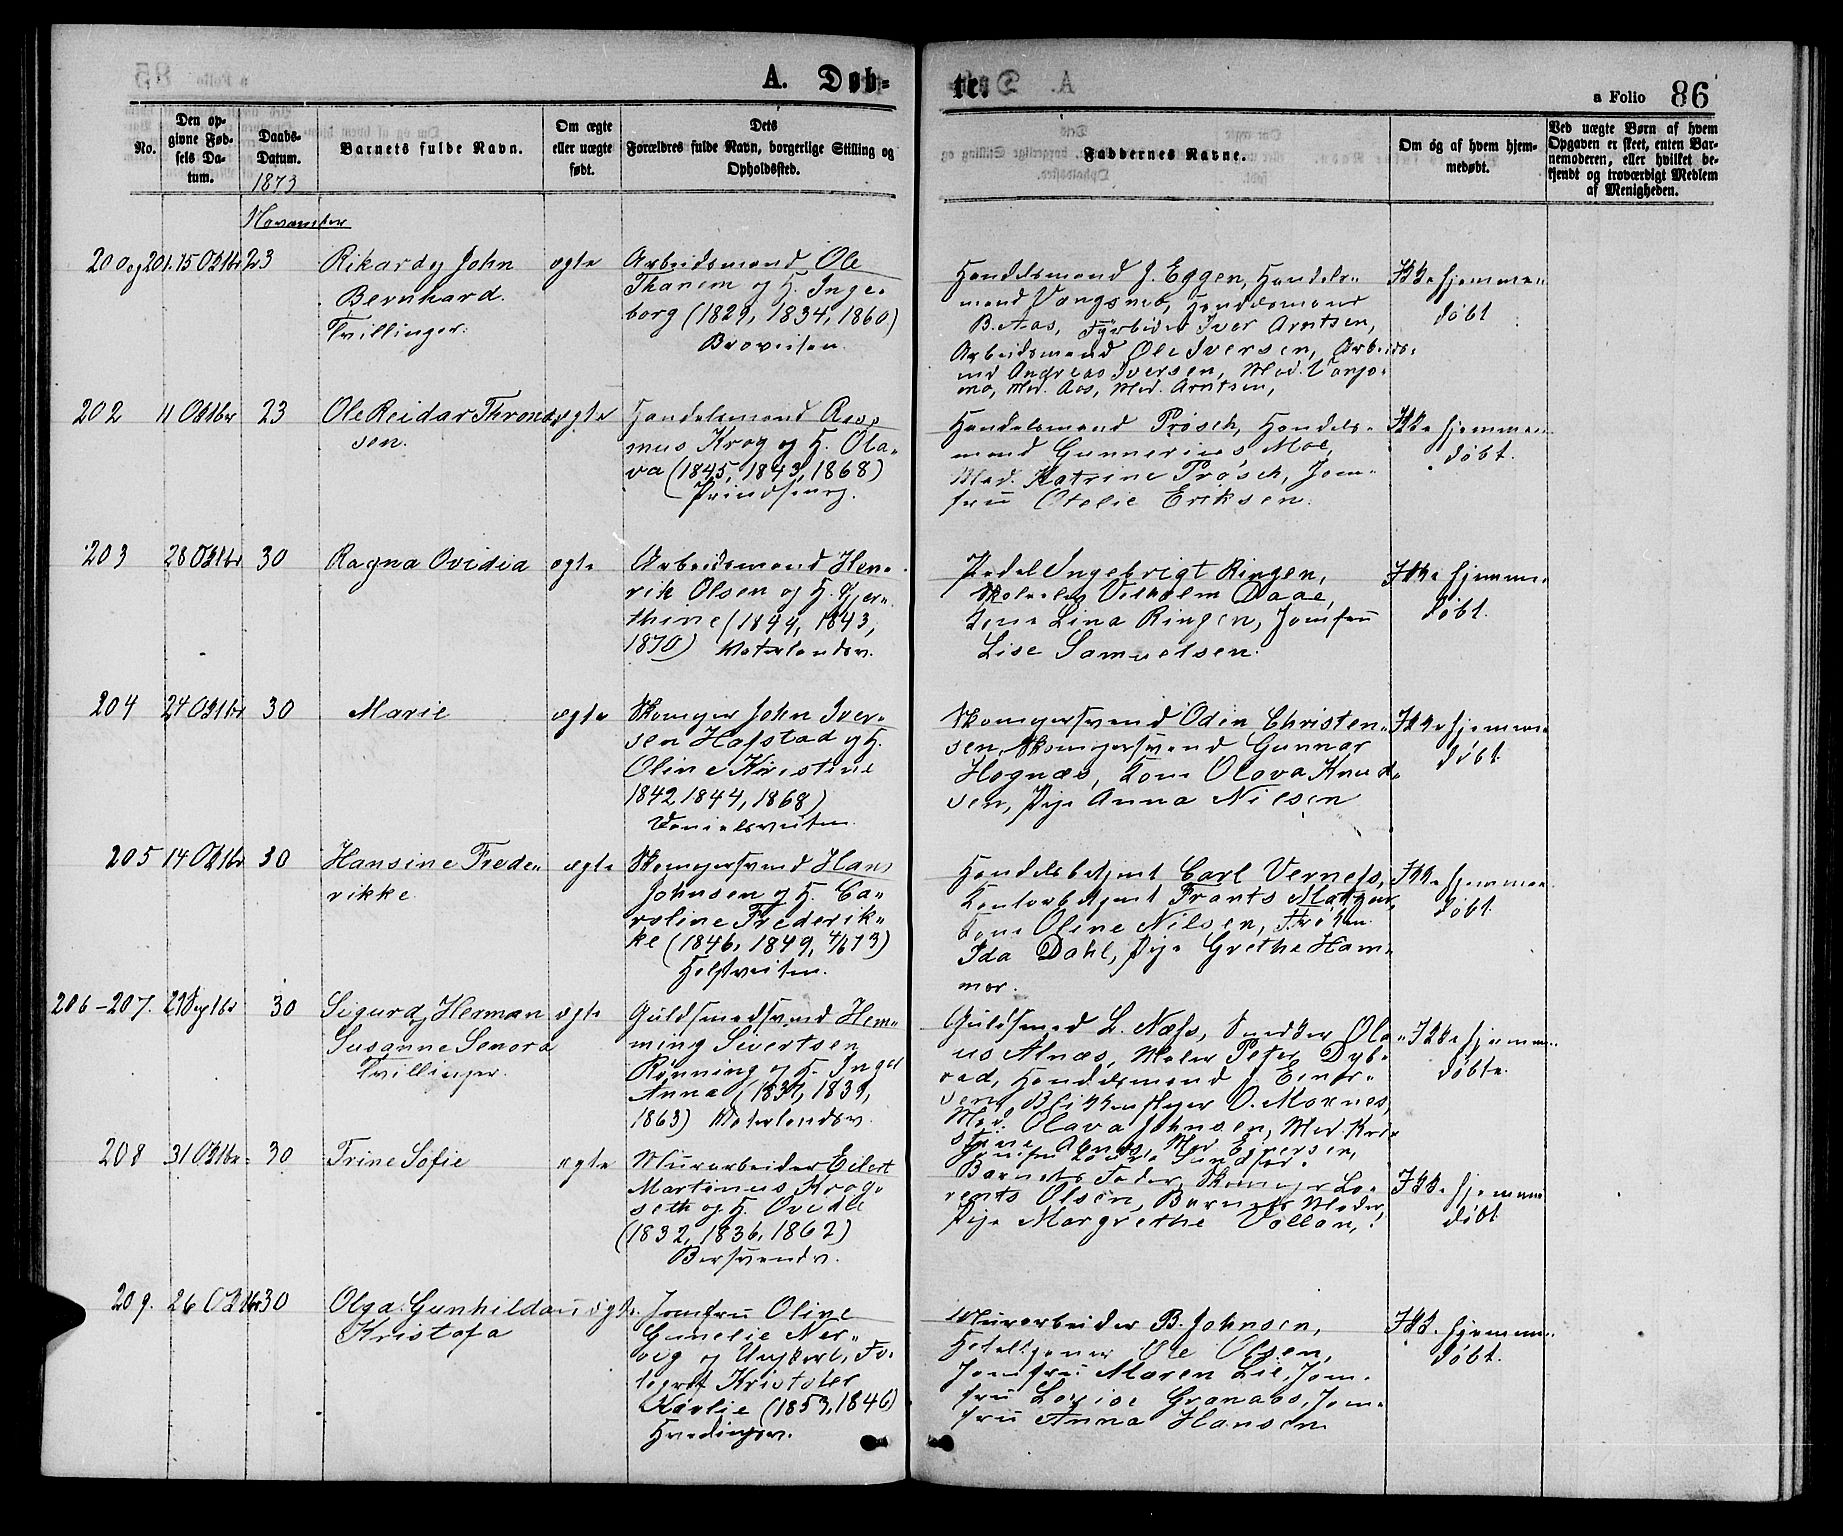 A. Døb-
te.
a Folio 86
No.
Den op-
givne Fød-
sels Da-
tum.
Daabs-
Datum.
1873
Barnets fulde Navn.
Om ægte
eller uægte
født.
Dets
Forældres fulde Navn, borgerlige Stilling og
Opholdssted.
Faddernes Navne.
Om og af hvem hjem-
medøbt.
Ved uægte Børn af hvem
Opgaven er skeet, enten Bar-
nemoderen, eller hvilket be-
kjendt og troværdigt Medlem
af Menigheden.
November
200 og 201. 15 Oktbr 23
Rikard og John
Bernhard.
Tvillinger.
ægte
Arbeidsmand Ole
Thanem og H. Inge-
borg (1829, 1834, 1860)
Broveiten.
Handelsmand J. Eggen, Handels-
mand Vangsmo, Handelsmand
B. Aas, Fyrbøder Iver Arntsen,
Arbeidsmand Ole Iversen, Arbeids-
md Andreas Iversen, Mad. Vangs-
mo, Mad. Aas, Mad. Arntsen,
Ikke hjemme-
døbt
202 11 Oktbr 23
Ole Reidar Thrond-
sen.
ægte
Handelsmand Ras-
mus Krog og H. Ola-
va (1845, 1843, 1868)
Prindseng.
Handelsmand Prøsch, Handels-
mand Gunnerius Moe,
Mad. Katrine Prøsch, Jom-
fru Otelie Eriksen.
Ikke hjemme-
døbt.
203 28 Oktbr 30
Ragna Ovidia
ægte
Arbeidsmand Hen-
rik Olsen og H. Gjer-
thine (1849, 1843,
1870) Vaterlandsv.
Pedel Ingebrigt Ringen,
Vilhelm Daae,
Kone Lina Ringen, Jomfru
Lise Samuelsen.
Ikke hjemme-
døbt.
204 24 Oktbr 30
Marie
ægte
Skomager John Iver-
sen Hofstad og H.
Oline Kristine
1842, 1844, 1868)
Danielsveiten.
Skomagersvend Odin Christen-
sen, Skomagersvend Gunnar
Hognæs, Kone Olava Knud-
sen, Pige Anna Nilsen
Ikke hjemme-
døbt.
205 14 Oktbr 30
Hansine Frede-
rikke
ægte
Skomagersvend Hans
Johnsen og H. Ca-
roline Frederik-
ke (1846, 1849, 4/673)
Holstveiten.
Handelsbetjent Carl Verness,
Kontorbetjent Frants Matzow,
Kone Oline Nilsen, Frøken
Ida Dahl, Pige Grethe Ham-
mer.
Ikke hjemme-
døbt.
206-207. 29 Septbr 30
Sigurd og Herman
Susanne Senora
Tvillinger.
ægte
Guldsmedsvend Hem-
ming Sivertsen
Rønning og H. Ingel
Anna (1837, 1839,
1863) Vaterlandsv.
Guldsmed L. Næss, Snedker Ola-
us Alnæs, Maler Peter Dyb-
vad, Handelsmand J Einar-
sen, Blikkenslager O. Moxnes,
Mad. Olava Johnsen, Mad. Kri-
stine Alnæs, Mad Einersen,
Jomfru Lovise Sundfør.
Ikke hjemme-
døbte.
208 31 Oktbr 30
Trine Sofie
ægte
Murarbeider Eilert
Martinus Krog-
seth og H. Ovidie
(1832, 1836, 1862)
Barsvendv.
Barnets Fader, Skomager Lo-
rents Olsen, Barnets Moder,
Pige Margrethe Vollan,
Ikke hjemme-
døbt
209. 26 Oktbr 30
Olga Gunhilda
Kristofa
uægte
Jomfru Oline
Gunelie Ner-
vig og Ungkarl, Fo-
tograf Kristofer
Kavlie (1853, 1846)
Hvedingsv.
Murarbeider B. Johnsen,
Hotelltjener Ole Olsen,
Jomfru Maren Lie, Jom-
fru Lovise Granaas, Jom-
fru Anna Hansen
Ikke hjemme-
døbt.